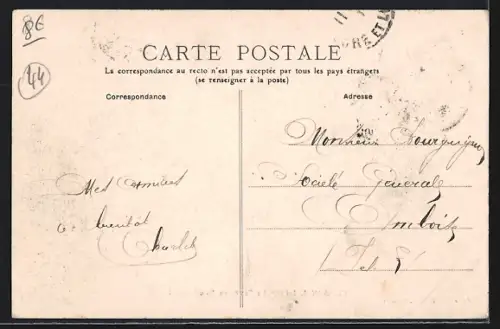 8€
44
11
ET L
CARTE POSTALE
La correspondance au recto n'est pas acceptée par tous les pays étrangers
(se renseigner à la poste)
Correspondance
Adresse
Monsieur Bourguignon
Société Générale
Amboise
Mes amitiés
bientôt
Charles